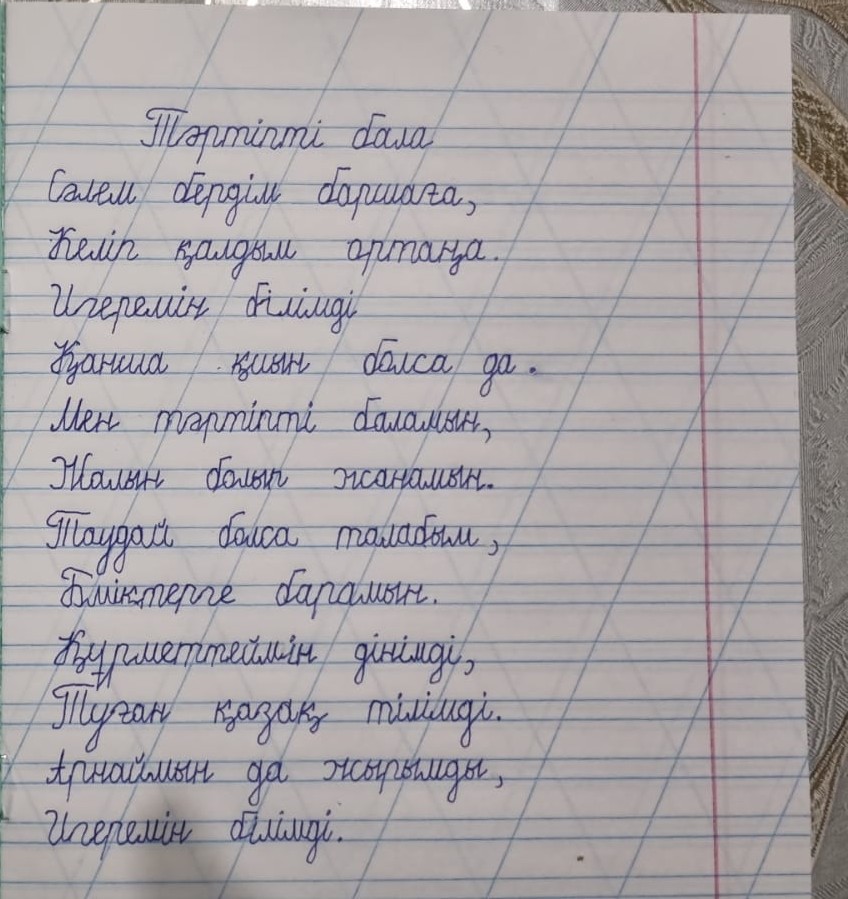 Тәртіпті бала
Сәлем бердім баршаға,
Келіп қалдым ортаңа.
Игеремін білімді
Қанша қиын болса да.
Мен тәртіпті баламын,
Жалын болып жанамын.
Таудай болса талабым,
Биіктерге барамын.
Құрметтеймін дінімді,
Туған қазақ тілімді.
Арнаймын да жырымды,
Игеремін білімді.